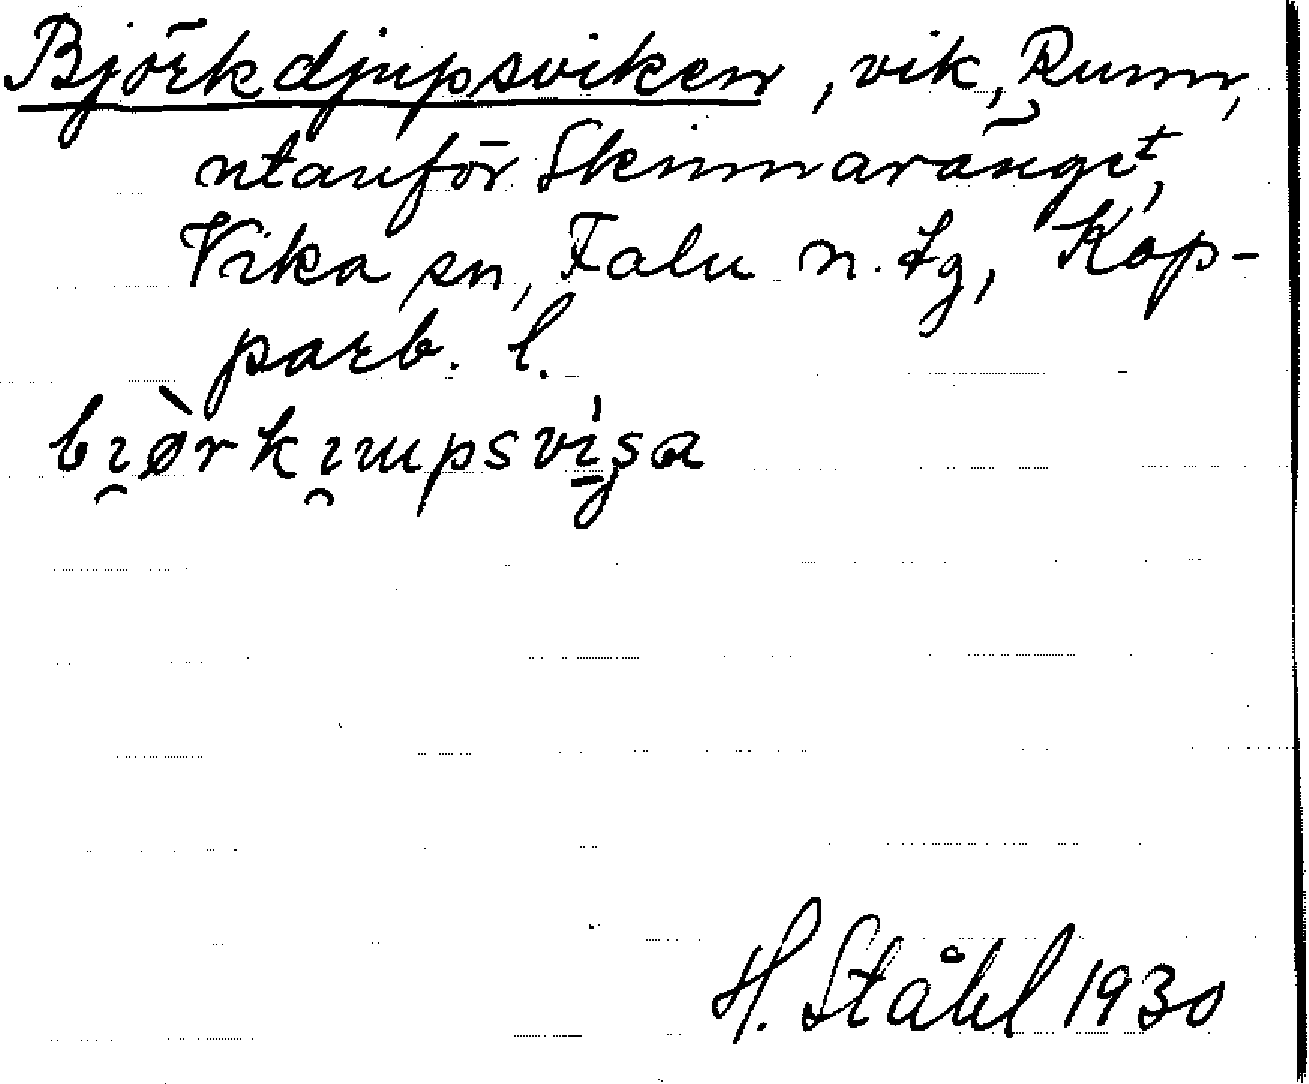 Björkdjupsviken, vik, Runn,
utanför Skinnaränget,
Vika sn, Falu n. tg, Kop-
parb. l.
bi̯ø̀rki̯upsví̱sa
H. Ståhl 1930